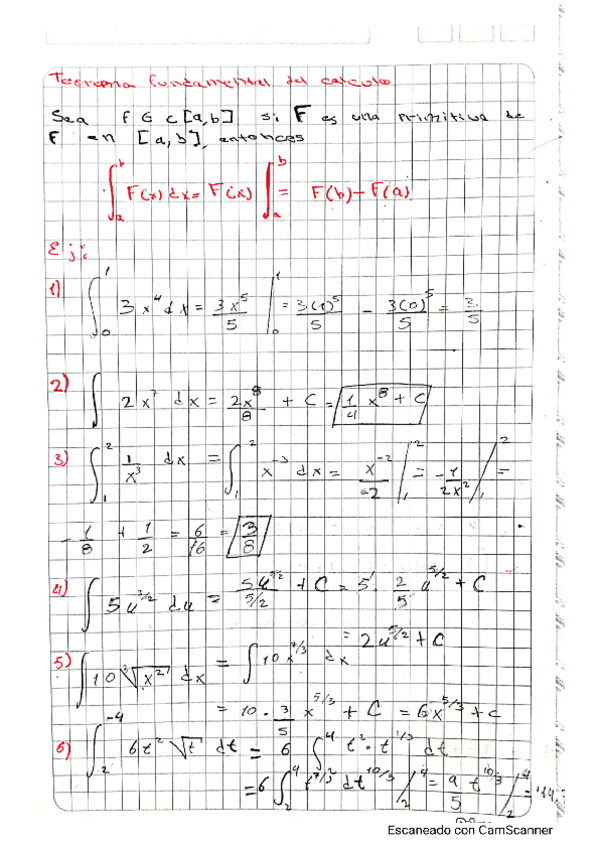 Teorema fundamental del calculo
Sea f ∈ c[a,b] si F es una primitiva de
F en [a,b], entonces
∫_a^b F(x) dx = F(x) |_a^b = F(b) - F(a)
Ej:
1) ∫_0^1 3x^4 dx = 3x^5/5 |_0^1 = 3(1)^5/5 - 3(0)^5/5 = 3/5
2) ∫ 2x^7 dx = 2x^8/8 + C = 1/4 x^8 + C
3) ∫_1^2 1/x^3 dx = ∫_1^2 x^-3 dx = x^-2/-2 |_1^2 = -1/2x^2 |_1^2 =
-1/8 + 1/2 = 6/16 = 3/8
4) ∫ 5u^3/2 du = 5u^5/2 / 5/2 + C = 5 · 2/5 u^5/2 + C
= 2u^5/2 + C
5) ∫ 10 ∛x^2 dx = ∫ 10x^2/3 dx
= 10 · 3/5 x^5/3 + C = 6x^5/3 + C
6) ∫_2^-4 6t^2 √t dt = 6 ∫^4 t^2 · t^1/3 dt
= 6 ∫_2^4 t^7/3 dt^10/3 |_2^4 = 9/5 t^10/3 |_2^4 =
Escaneado con CamScanner